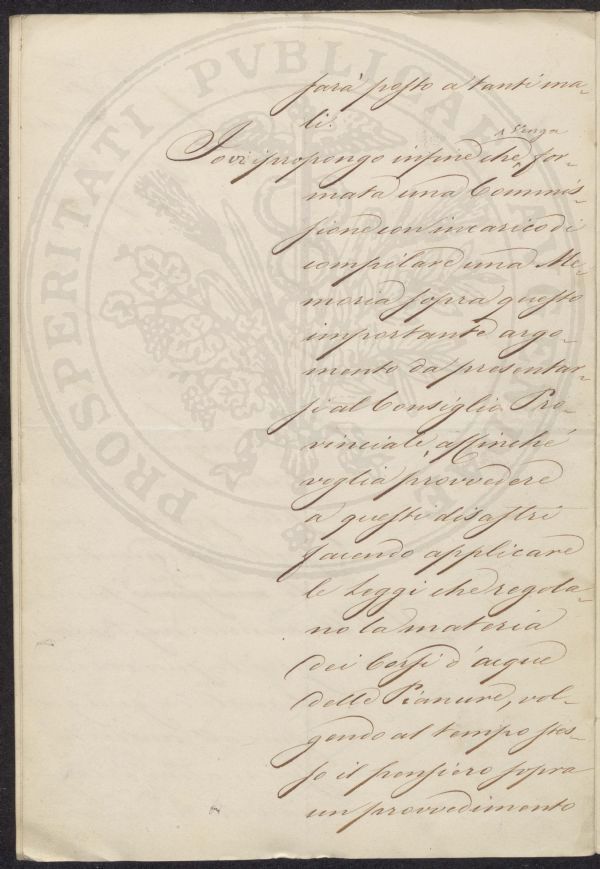 sarà posto a tanti ma-
li.
Io vi propongo infine che, for-
venga
mata una Commis-
sione con incarico di
compilare una Me-
moria sopra questo
importante argo-
mento da presentar-
si al Consiglio Pro-
vinciale, affinché
voglia provvedere
a questi disastri
facendo applicare
le Leggi che regola-
no la materia
dei Corsi d'acque
delle Pianure, vol-
gendo al tempo stes-
so il pensiero sopra
un provvedimento
PROSPERITATI PVBLICAE